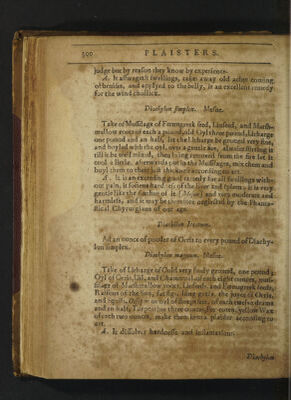 300 PLAISTERS.
judge but by reason they know by experience.
A. It asswageth swellings, takes away old aches coming
of bruises, and applyed to the belly, is an excellent remedy
for the wind chollick.
Diachylon simplex. Mesue.
Take of Mussilage of Fennugreek seed, Linseed, and Marsh-
mallow roots of each a pound, old Oyl three pound, Litharge
one pound and an half, let the Litharge be ground very fine,
and boyled with the oyl, over a gentle fire, alwaies stirring it
till it be well mixed, then being removed from the fire let it
cool a little, afterwards put in the Mussilages, mix them and
boyl them to their just thickness according to art.
A. It is an exceeding good remedy for all swellings with-
out pain, it softens hardness of the liver and spleen, it is very
gentle
harmless, and it may be
Chyrurgions of our age.
Diachylon Ireatum.
Ad an ounce of pouder of Orris to every pound of Diachy-
lon simplex.
Diachylon magnum. Mesue.
Take of Litharge of Gold very finely ground, one pound;
Oyl of Orris, Dill, and Chamomel of each eight ounces, mussi-
lage of Marshmallow roots, Linseed, and Fennugreek seeds,
Raisons of the Sun, fat figs, the juyce of Orris,
and squils, of each twelve drams
and an half, Turpentine three ounces, yellow Wax
of each two ounces, make them into a plaister according to
art.
A. It dissolves hardness and inflamations.
Diachylon